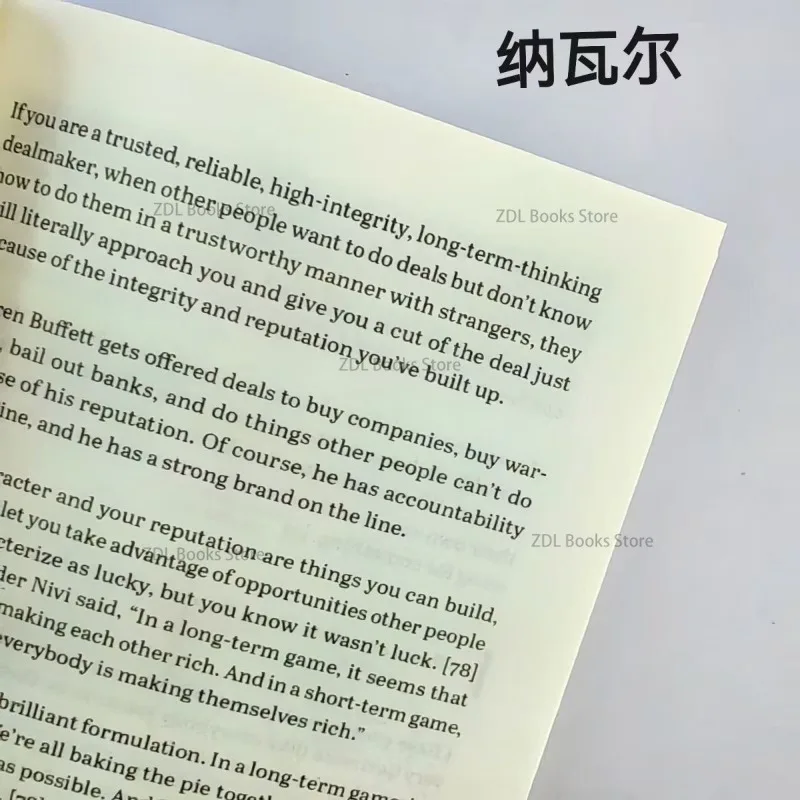 纳瓦尔
If you are a trusted, reliable, high-integrity, long-term-thinking
dealmaker, when other people want to do deals but don't know
how to do them in a trustworthy manner with strangers, they
literally approach you and give you a cut of the deal just
of the integrity and reputation you've built up.
Buffett gets offered deals to buy companies, buy war-
bail out banks, and do things other people can't do
of his reputation. Of course, he has accountability
and he has a strong brand on the line.
and your reputation are things you can build,
let you take advantage of opportunities other people
as lucky, but you know it wasn't luck. [78]
Nivi said, "In a long-term game, it seems that
making each other rich. And in a short-term game,
everybody is making themselves rich."
brilliant formulation. In a long-term game
We're all baking the pie
as possible. And
ZDL Books Store
ZDL Books Store
ZDL Books Store
ZDL Books Store
ZDL Books Store